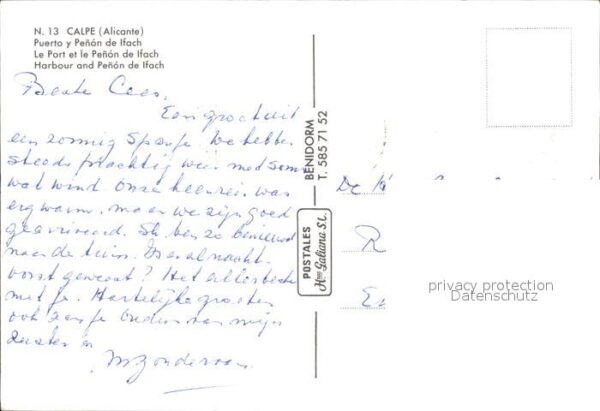 N. 13 CALPE (Alicante)
Puerto y Peñón de Ifach
Le Port et le Peñón de Ifach
Harbour and Peñón de Ifach
Beste Cees,
Een groet uit
een zonnig Spanje. We hebben
steeds prachtig weer met soms
wat wind. Onze heenreis was
erg warm, maar we zijn goed
gearriveerd. Ik ben zo benieuwd
naar de tuin. Is er al nacht-
vorst geweest? Het allerbeste
met je. Hartelijke groeten
ook aan je ouders van mijn
zuster en
M Zonderman
BENIDORM
T. 585 71 52
POSTALES
Hnos Galiana S.L.
De
R
privacy protection
Datenschutz